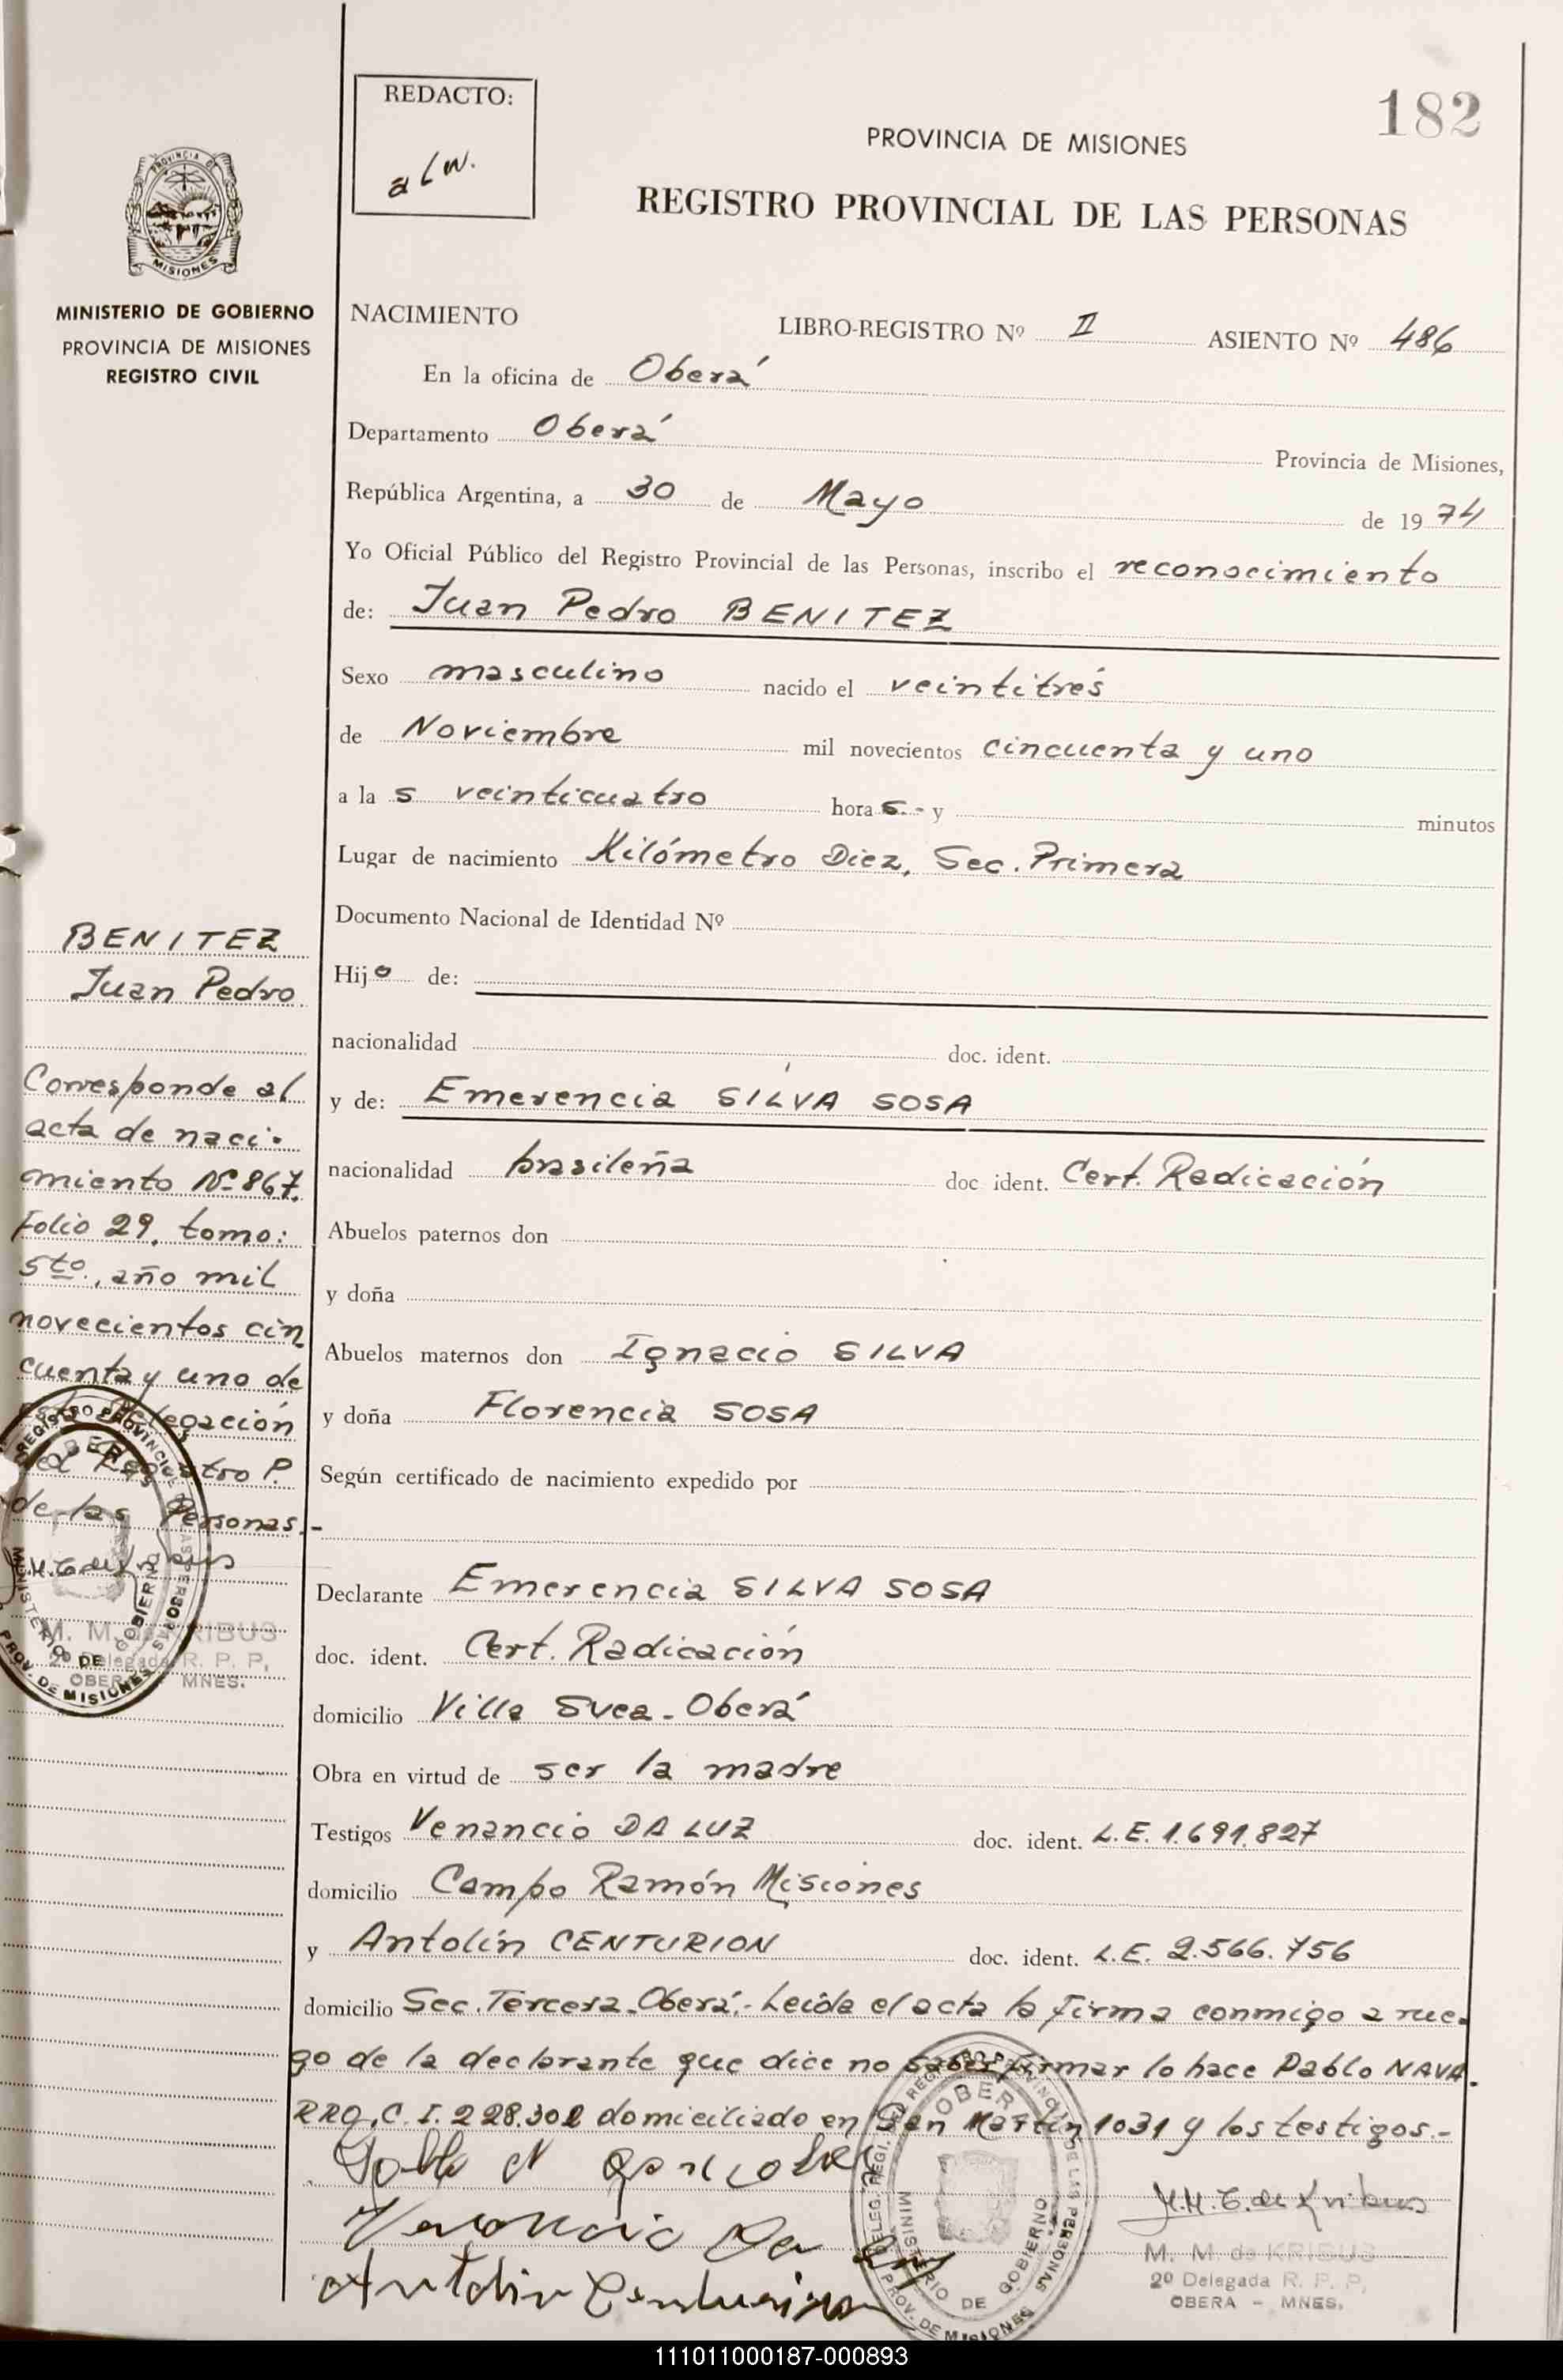 182
REDACTO:
a l w.
PROVINCIA DE MISIONES
REGISTRO PROVINCIAL DE LAS PERSONAS
PROVINCIA DE
MISIONES
MINISTERIO DE GOBIERNO
PROVINCIA DE MISIONES
REGISTRO CIVIL
NACIMIENTO LIBRO-REGISTRO Nº II ASIENTO Nº 486
En la oficina de Oberá
Departamento Oberá Provincia de Misiones,
República Argentina, a 30 de Mayo de 1974
Yo Oficial Público del Registro Provincial de las Personas, inscribo el reconocimiento
de: Juan Pedro BENITEZ
Sexo masculino nacido el veintitrés
de Noviembre mil novecientos cincuenta y uno
a la s veinticuatro hora s.- y minutos
Lugar de nacimiento Kilómetro Diez, Sec. Primera
Documento Nacional de Identidad Nº
Hijo de:
nacionalidad doc. ident.
y de: Emerencia SILVA SOSA
nacionalidad brasileña doc ident. Cert. Radicación
Abuelos paternos don
y doña
Abuelos maternos don Ignacio SILVA
y doña Florencia SOSA
Según certificado de nacimiento expedido por
Declarante Emerencia SILVA SOSA
doc. ident. Cert. Radicación
domicilio Villa Svea - Oberá
Obra en virtud de ser la madre
Testigos Venancio DA LUZ doc. ident. L.E. 1.691.827
domicilio Campo Ramón Misiones
y Antolín CENTURION doc. ident. L.E. 2.566.756
domicilio Sec. Tercera - Oberá.- Leída el acta la firma conmigo a rue-
go de la declarante que dice no saber firmar lo hace Pablo NAVA-
RRO, C.I. 228.302 domiciliado en San Martín 1031 y los testigos.-
Venancio Da Luz
Antolin Centurion
M.M.C. de Kribus
M. M. de KRIBUS
2º Delegada R. P. P,
OBERA - MNES.
BENITEZ
Juan Pedro
Corresponde al
acta de naci-
miento Nº 867.
Folio 29, tomo:
5to., año mil
novecientos cin
cuenta y uno de
esta Delegación
del Registro P.
de las Personas.-
M. M. de KRIBUS
2º Delegada R. P. P,
OBERA - MNES.
111011000187-000893